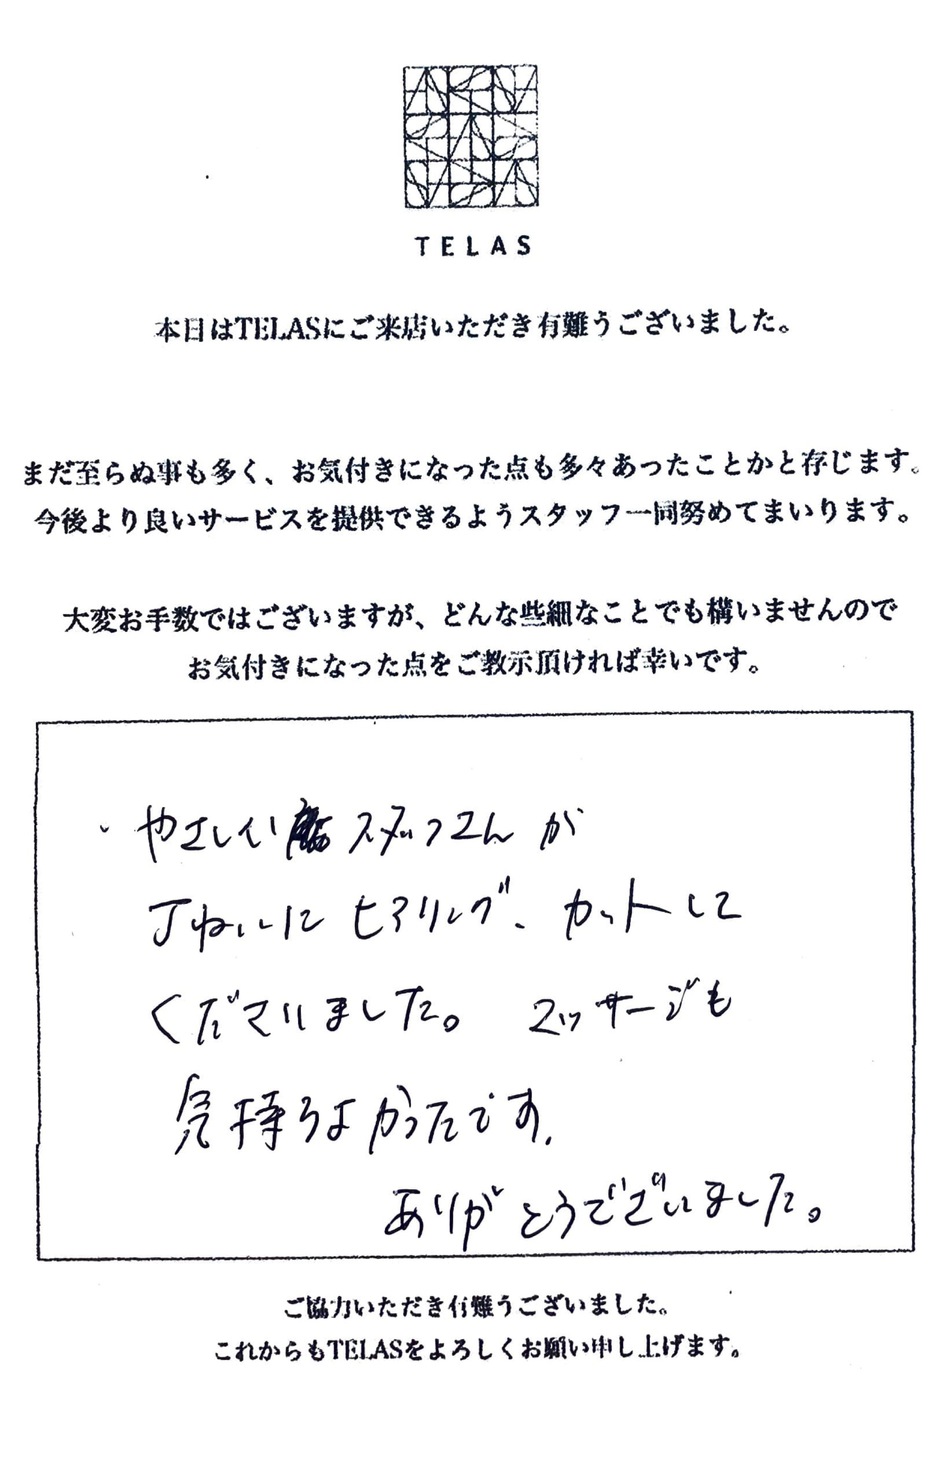 TELAS
本日はTELASにご来店いただき有難うございました。
まだ至らぬ事も多く、お気付きになった点も多々あったことかと存じます。
今後より良いサービスを提供できるようスタッフ一同努めてまいります。
大変お手数ではございますが、どんな些細なことでも構いませんので
お気付きになった点をご教示頂ければ幸いです。
・やさしい スタッフさんが
丁ねいに ヒアリング、カットして
くださいました。 マッサージも
気持ちよかったです。
ありがとうございました。
ご協力いただき有難うございました。
これからもTELASをよろしくお願い申し上げます。